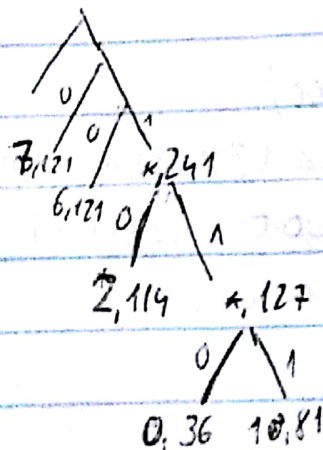 0
0 1
7,121
6,121 *,241
0 1
2,114 *,127
0 1
0,36 10,81